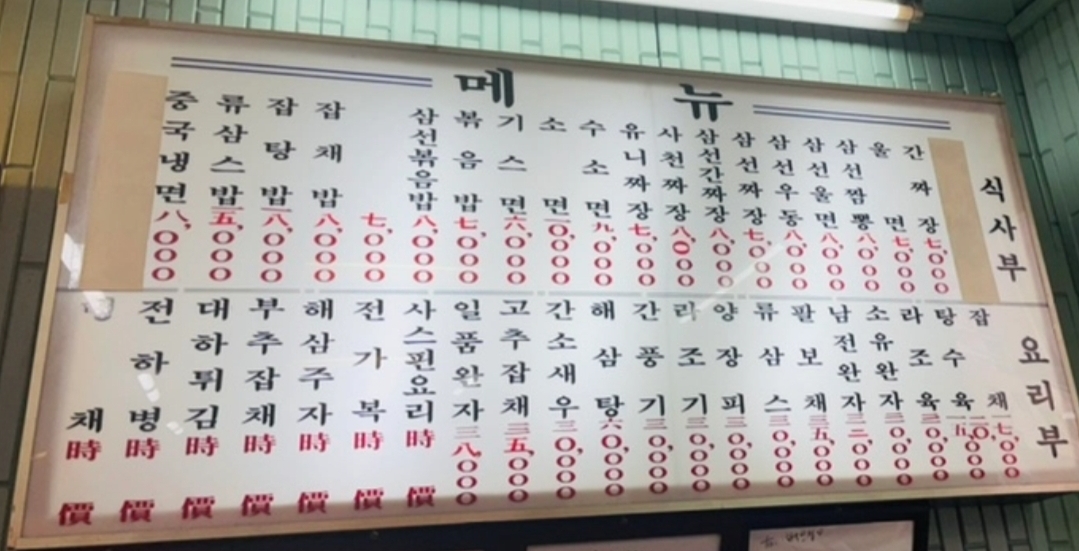 메뉴
식사부
간짜장 七,000
울면 七,000
삼선짬뽕 八,000
삼선울면 八,000
삼선우동 八,000
삼선짜장 七,000
삼선간짜장 八,000
사천짜장 八,000
유니짜장 七,000
수소면 九,000
소면
기스면 六,000
볶음밥 七,000
삼선볶음밥 八,000
七,000
잡채밥 八,000
잡탕밥
류삼스밥
중국냉면 八,000
요리부
잡채
탕수육
라조육
소유완자
남전완자
팔보채 三五,000
류삼스 三0,000
양장피 三0,000
라조기 三0,000
간풍기 三0,000
해삼탕 六0,000
간소새우 三0,000
고추잡채 三五,000
일품완자 三八,000
사스핀요리 時價
전가복 時價
해삼주자 時價
부추잡채 時價
대하튀김 時價
전하병 時價
채 時價